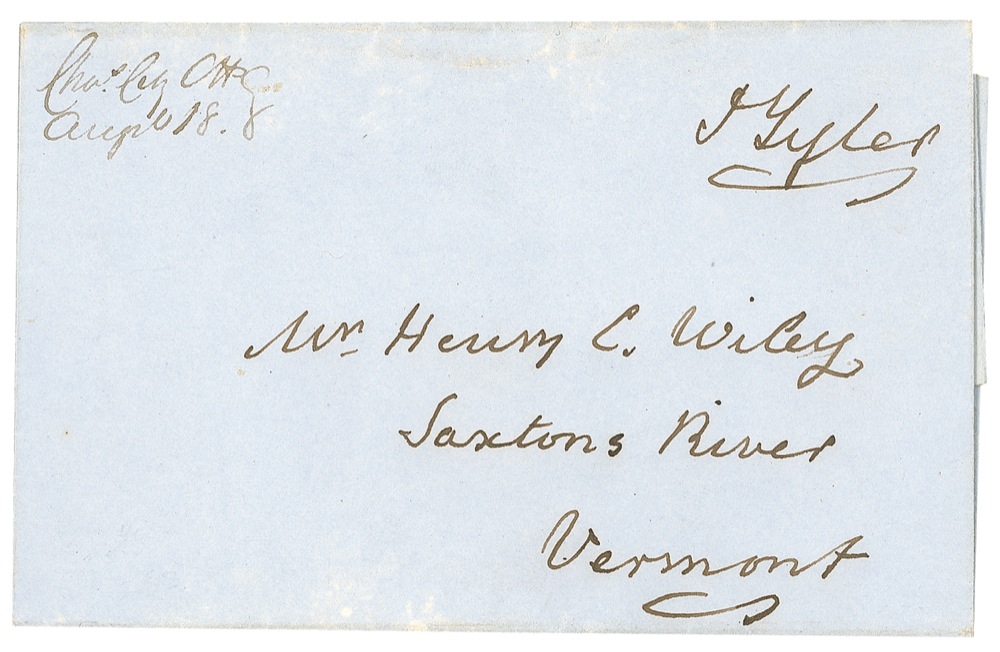 Chas. City C.H.
Augst 18.
J Tyler
Mr. Henry C. Wiley
Saxtons River
Vermont